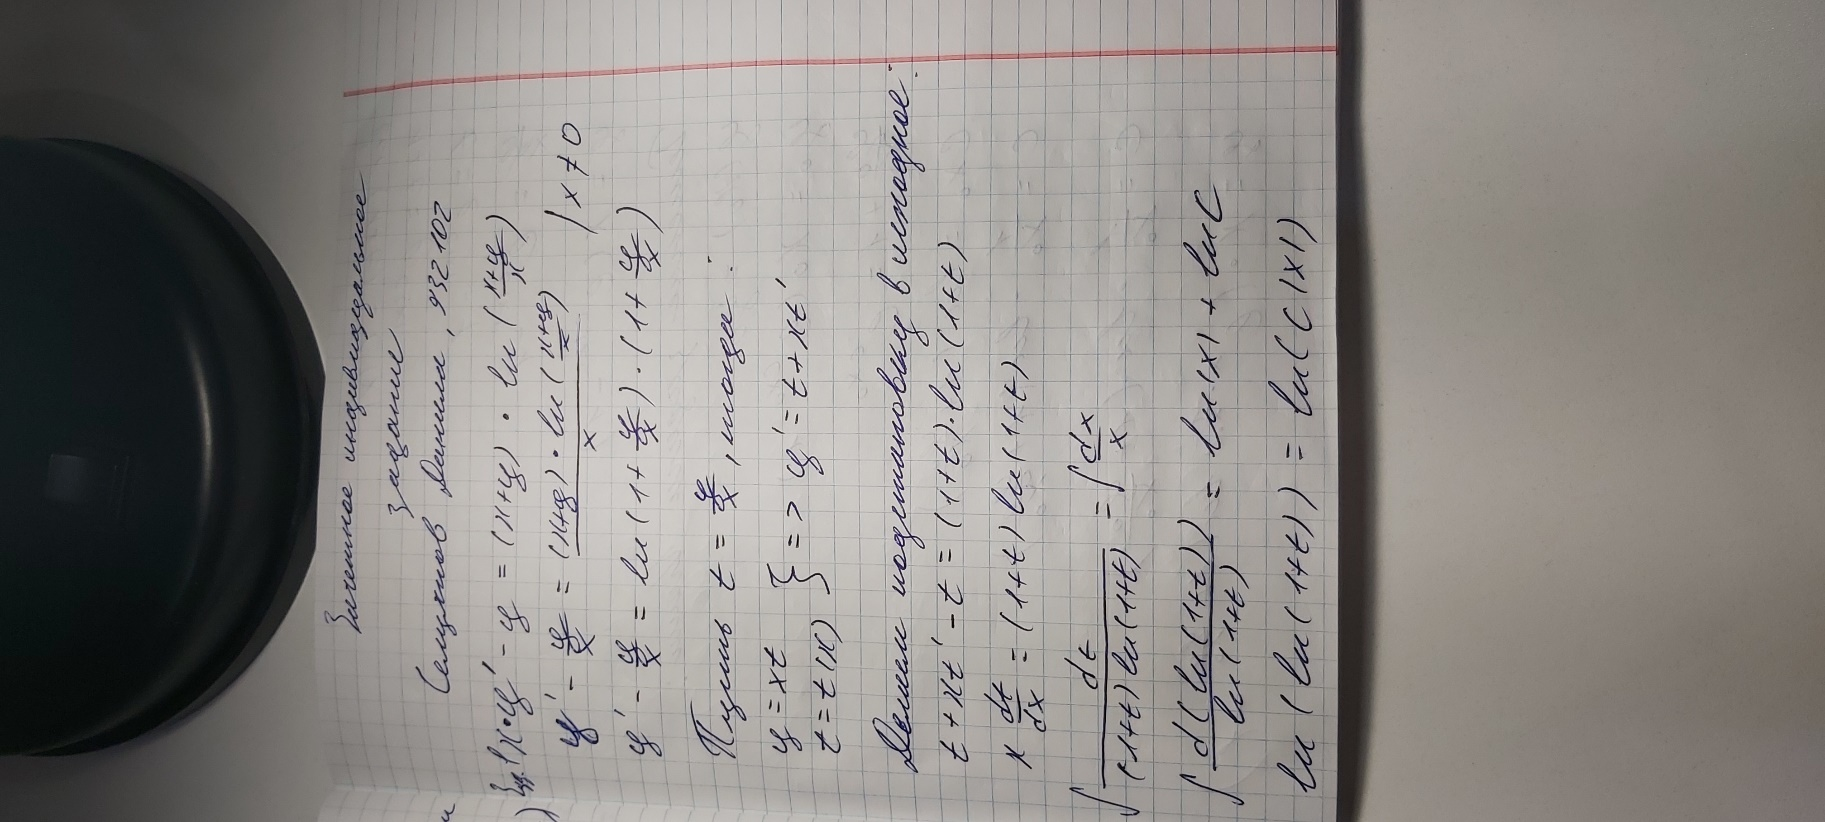 Зачетное индивидуальное
задание
Селуков Данила, 932102
Зад.1
) x·y' - y = (x+y) · ln((x+y)/x)
y' - y/x = ((x+y) · ln((x+y)/x))/x | x ≠ 0
y' - y/x = ln(1 + y/x) · (1 + y/x)
Пусть t = y/x, тогда:
y = xt
t = t(x) } => y' = t + xt'
Делаем подстановку в исходное:
t + xt' - t = (1+t)·ln(1+t)
x dt/dx = (1+t) ln(1+t)
∫ dt/((1+t) ln(1+t)) = ∫ dx/x
∫ d(ln(1+t))/ln(1+t) = ln|x| + ln C
ln(ln(1+t)) = ln(C|x|)